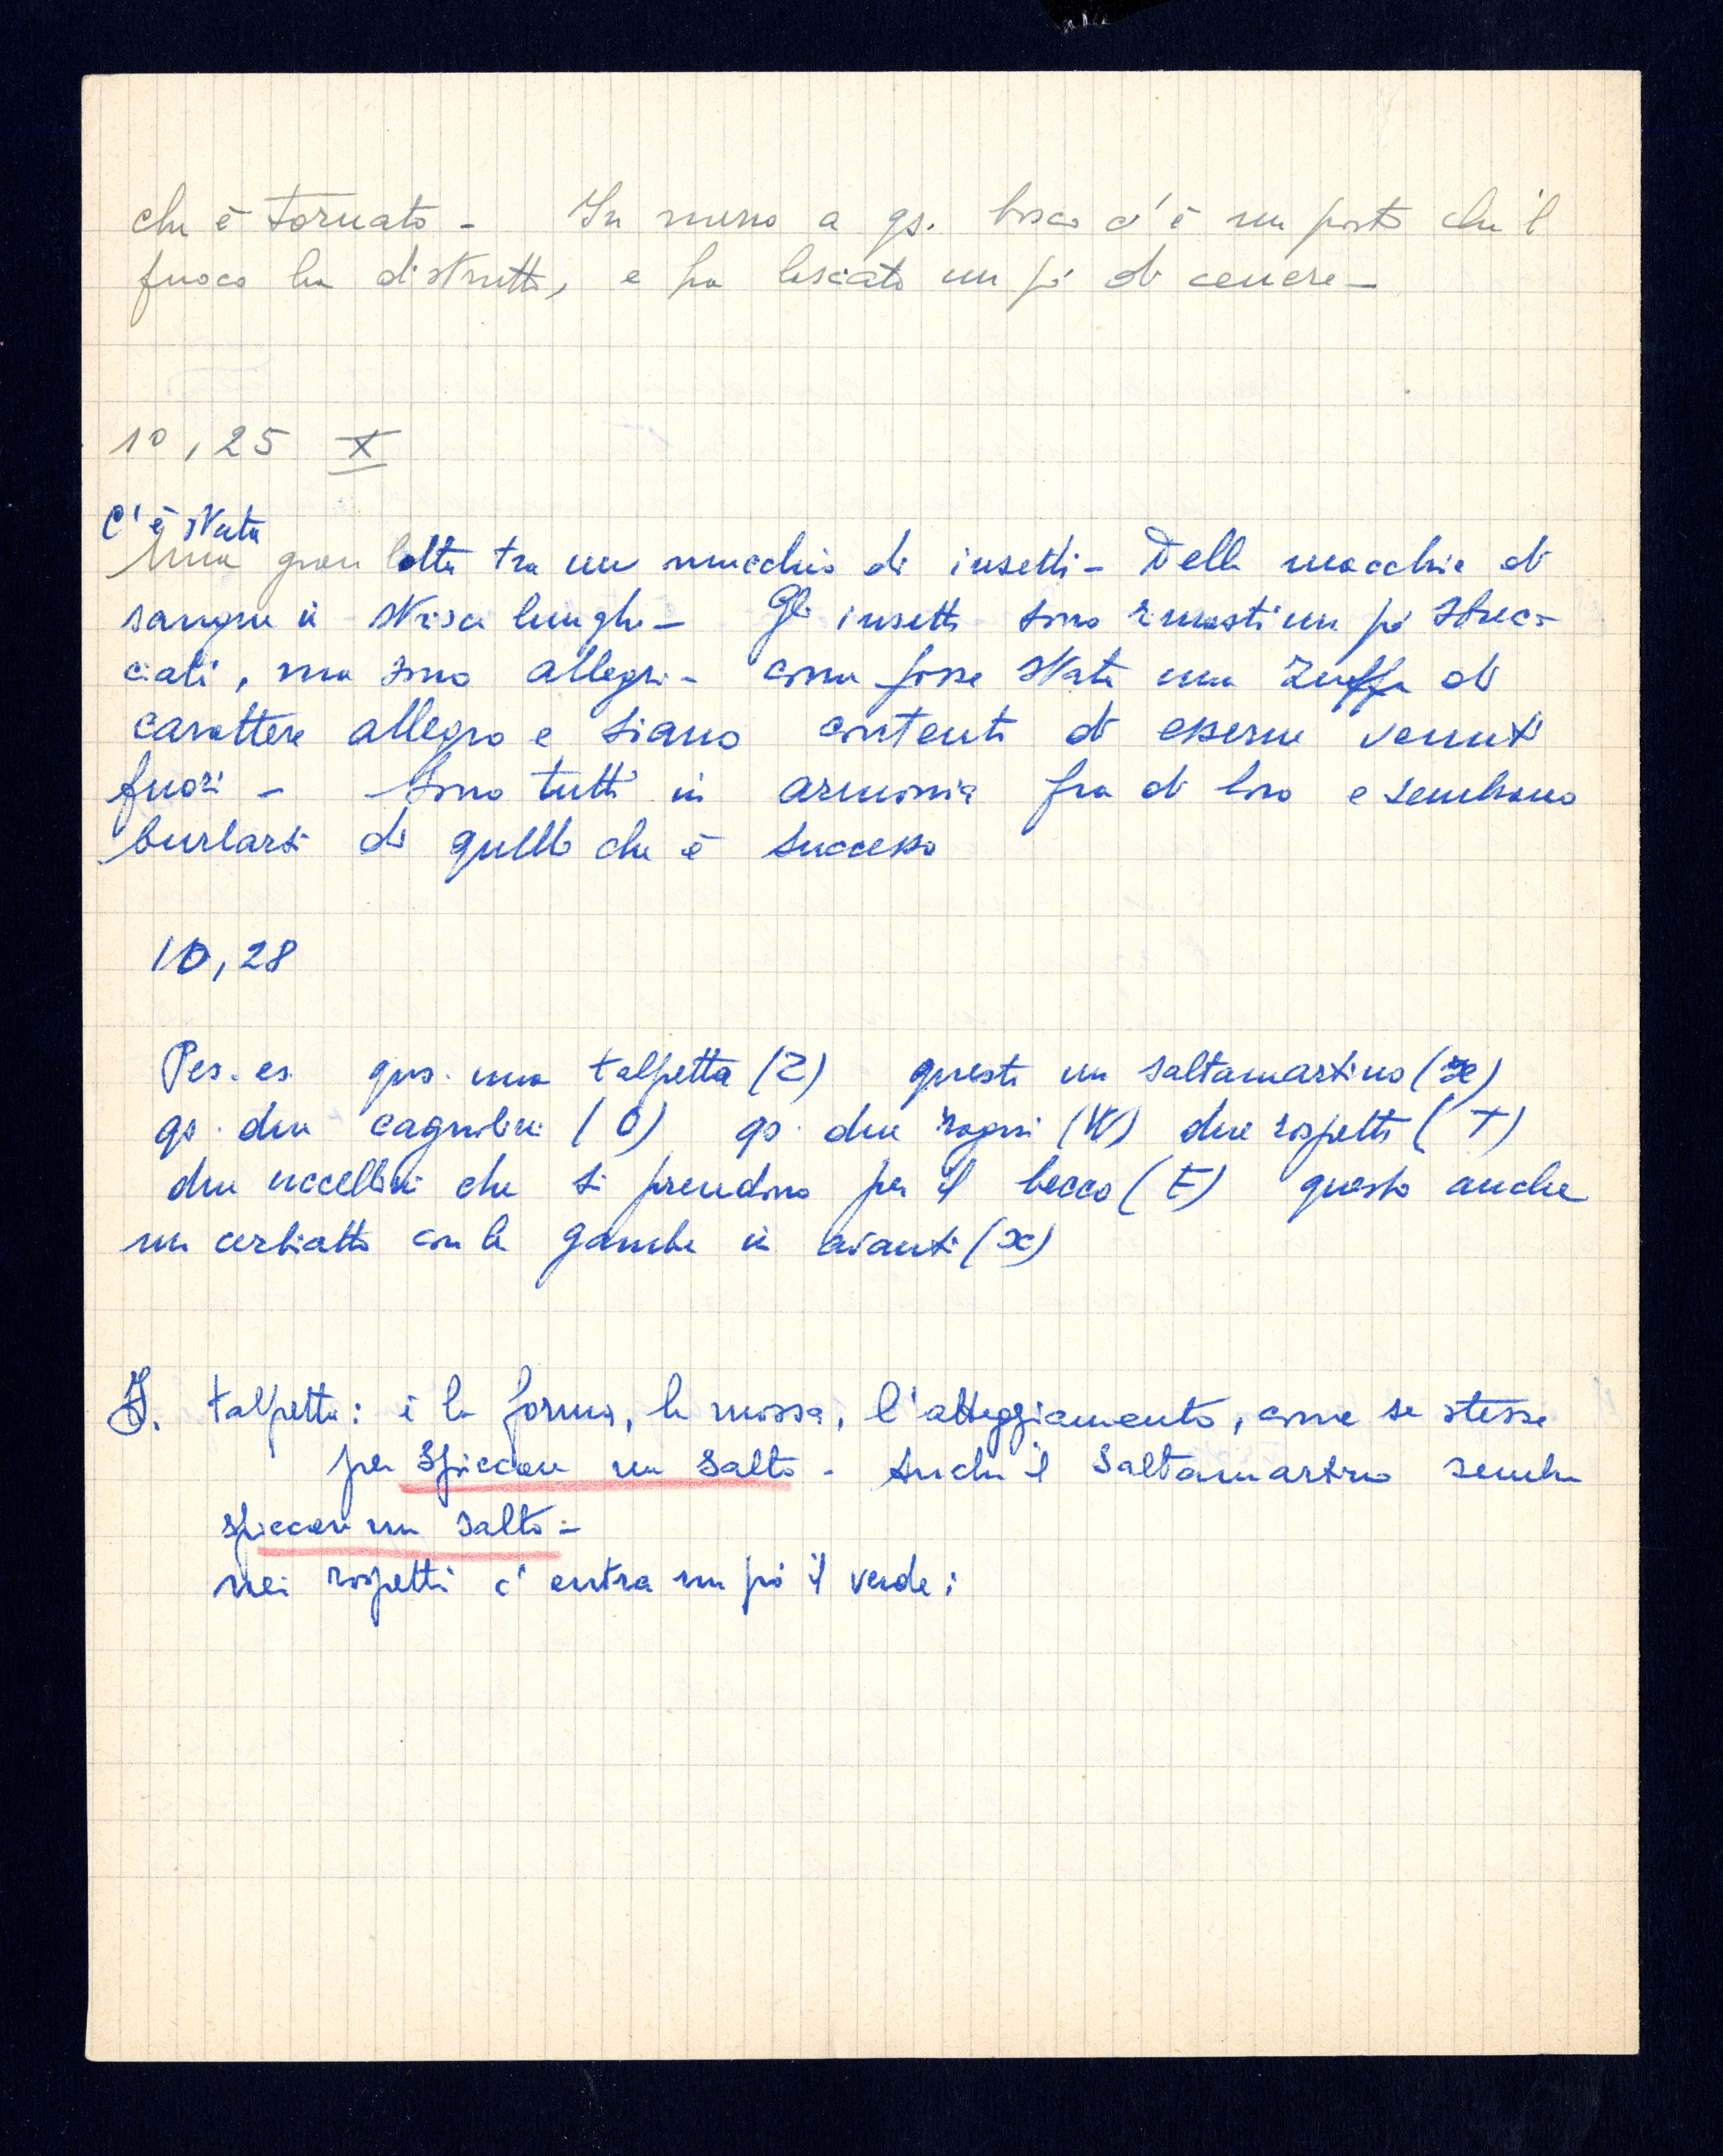 che è tornato - In mezzo a qs. bosco c'è un posto che il
fuoco ha distrutto, e ha lasciato un pò di cenere -
10,25 X
C'è stata
Una gran lotta tra un mucchio di insetti - Delle macchie di
sangue in strisce lunghe - Gli insetti sono rimasti un pò strac-
ciati, ma sono allegri - come fosse stata una zuffa di
carattere allegro e siano contenti di esserne venuti
fuori - Sono tutti in armonia fra di loro e sembrano
burlarsi di quello che è successo
10,28
Per. es. qus. una talpetta (Z) questo un saltamartino (x)
qs. due cagnolini (O) qs. due ragni (W) due rospetti (T)
due uccellini che si prendono per il becco (E) questo anche
un cerbiatto con le gambe in avanti (x)
I. talpetta: è la forma, la mossa, l'atteggiamento, come se stesse
per spiccare un salto - Anche il saltamartino sembra
spiccare un salto -
nei rospetti c'entra un pò il verde;